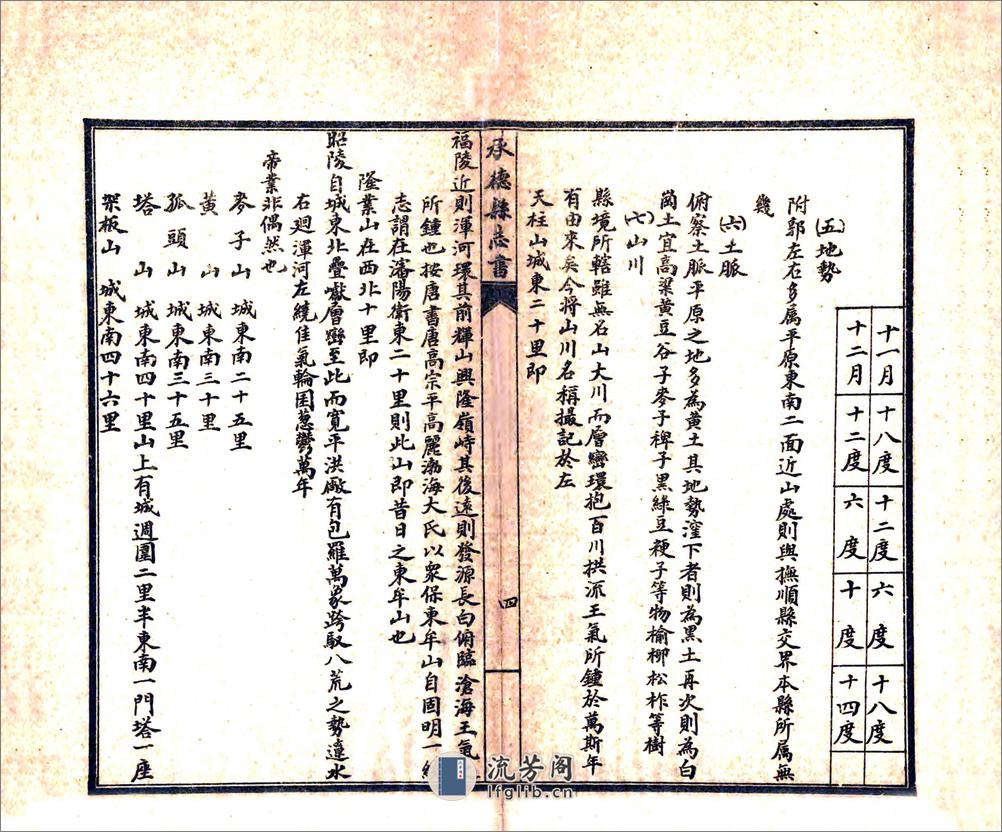 十一月 十八度 十二度 六度 十八度
十二月 十二度 六度 十度 十四度
㈤地勢
附郭左右多属平原東南二面近山處則與撫順縣交界本縣所属無
幾
㈥土脈
俯察土脈平原之地多為黄土其地勢窪下者則為黑土再次則為白
崗土宜高粱黄豆谷子麥子稗子黑綠豆粳子等物榆柳松柞等樹
㈦山川
縣境所轄雖無名山大川而層巒環抱百川拱派王氣所鍾於萬斯年
有由來矣今將山川名稱撮記於左
天柱山城東二十里即
承德縣志書
四
福陵近則渾河環其前輝山興隆嶺峙其後遠則發源長白俯臨滄海王氣
所鍾也按唐書唐高宗平高麗渤海大氏以衆保東牟山自固明一統
志謂在瀋陽衛東二十里則此山即昔日之東牟山也
隆業山在西北十里即
昭陵自城東北疊巘層巒至此而寬平洪敞有包羅萬象跨馭八荒之勢遼水
右廻渾河左繞佳氣輪囷葱鬱萬年
帝業非偶然也
麥子山 城東南二十五里
黄山 城東南三十里
孤頭山 城東南三十五里
塔山 城東南四十里山上有城週圍二里半東南一門塔一座
架板山 城東南四十六里
流芳阁
lfglib.cn